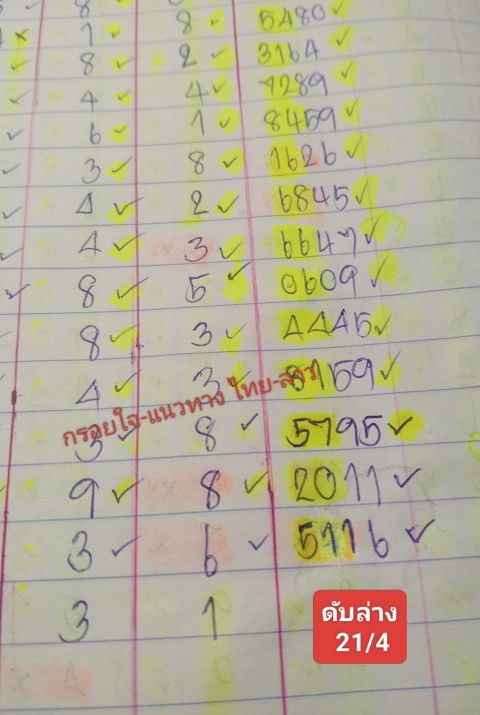 8 ✓ 8 ✓ 5480 ✓
× 1 ✓ 2 ✓ 3164 ✓
✓ 8 ✓ 4 ✓ 7289 ✓
4 ✓ 1 ✓ 8459 ✓
✓ 6 ✓ 8 ✓ 1626 ✓
✓ 3 ✓ 2 ✓ 6845 ✓
✓ 4 ✓ 3 ✓ 6647 ✓
✓ 4 ✓ 5 ✓ 0609 ✓
✓ 8 ✓ 3 ✓ 4445 ✓
8 ✓ 3 ✓ 8159 ✓
4 ✓ 8 ✓ 5795 ✓
กรอยใจ-แนวทาง ไทย-ลาว
3 ✓ 8 ✓ 2011 ✓
9 ✓ 6 ✓ 5116 ✓
3 ✓ 1
3
ดับล่าง
21/4